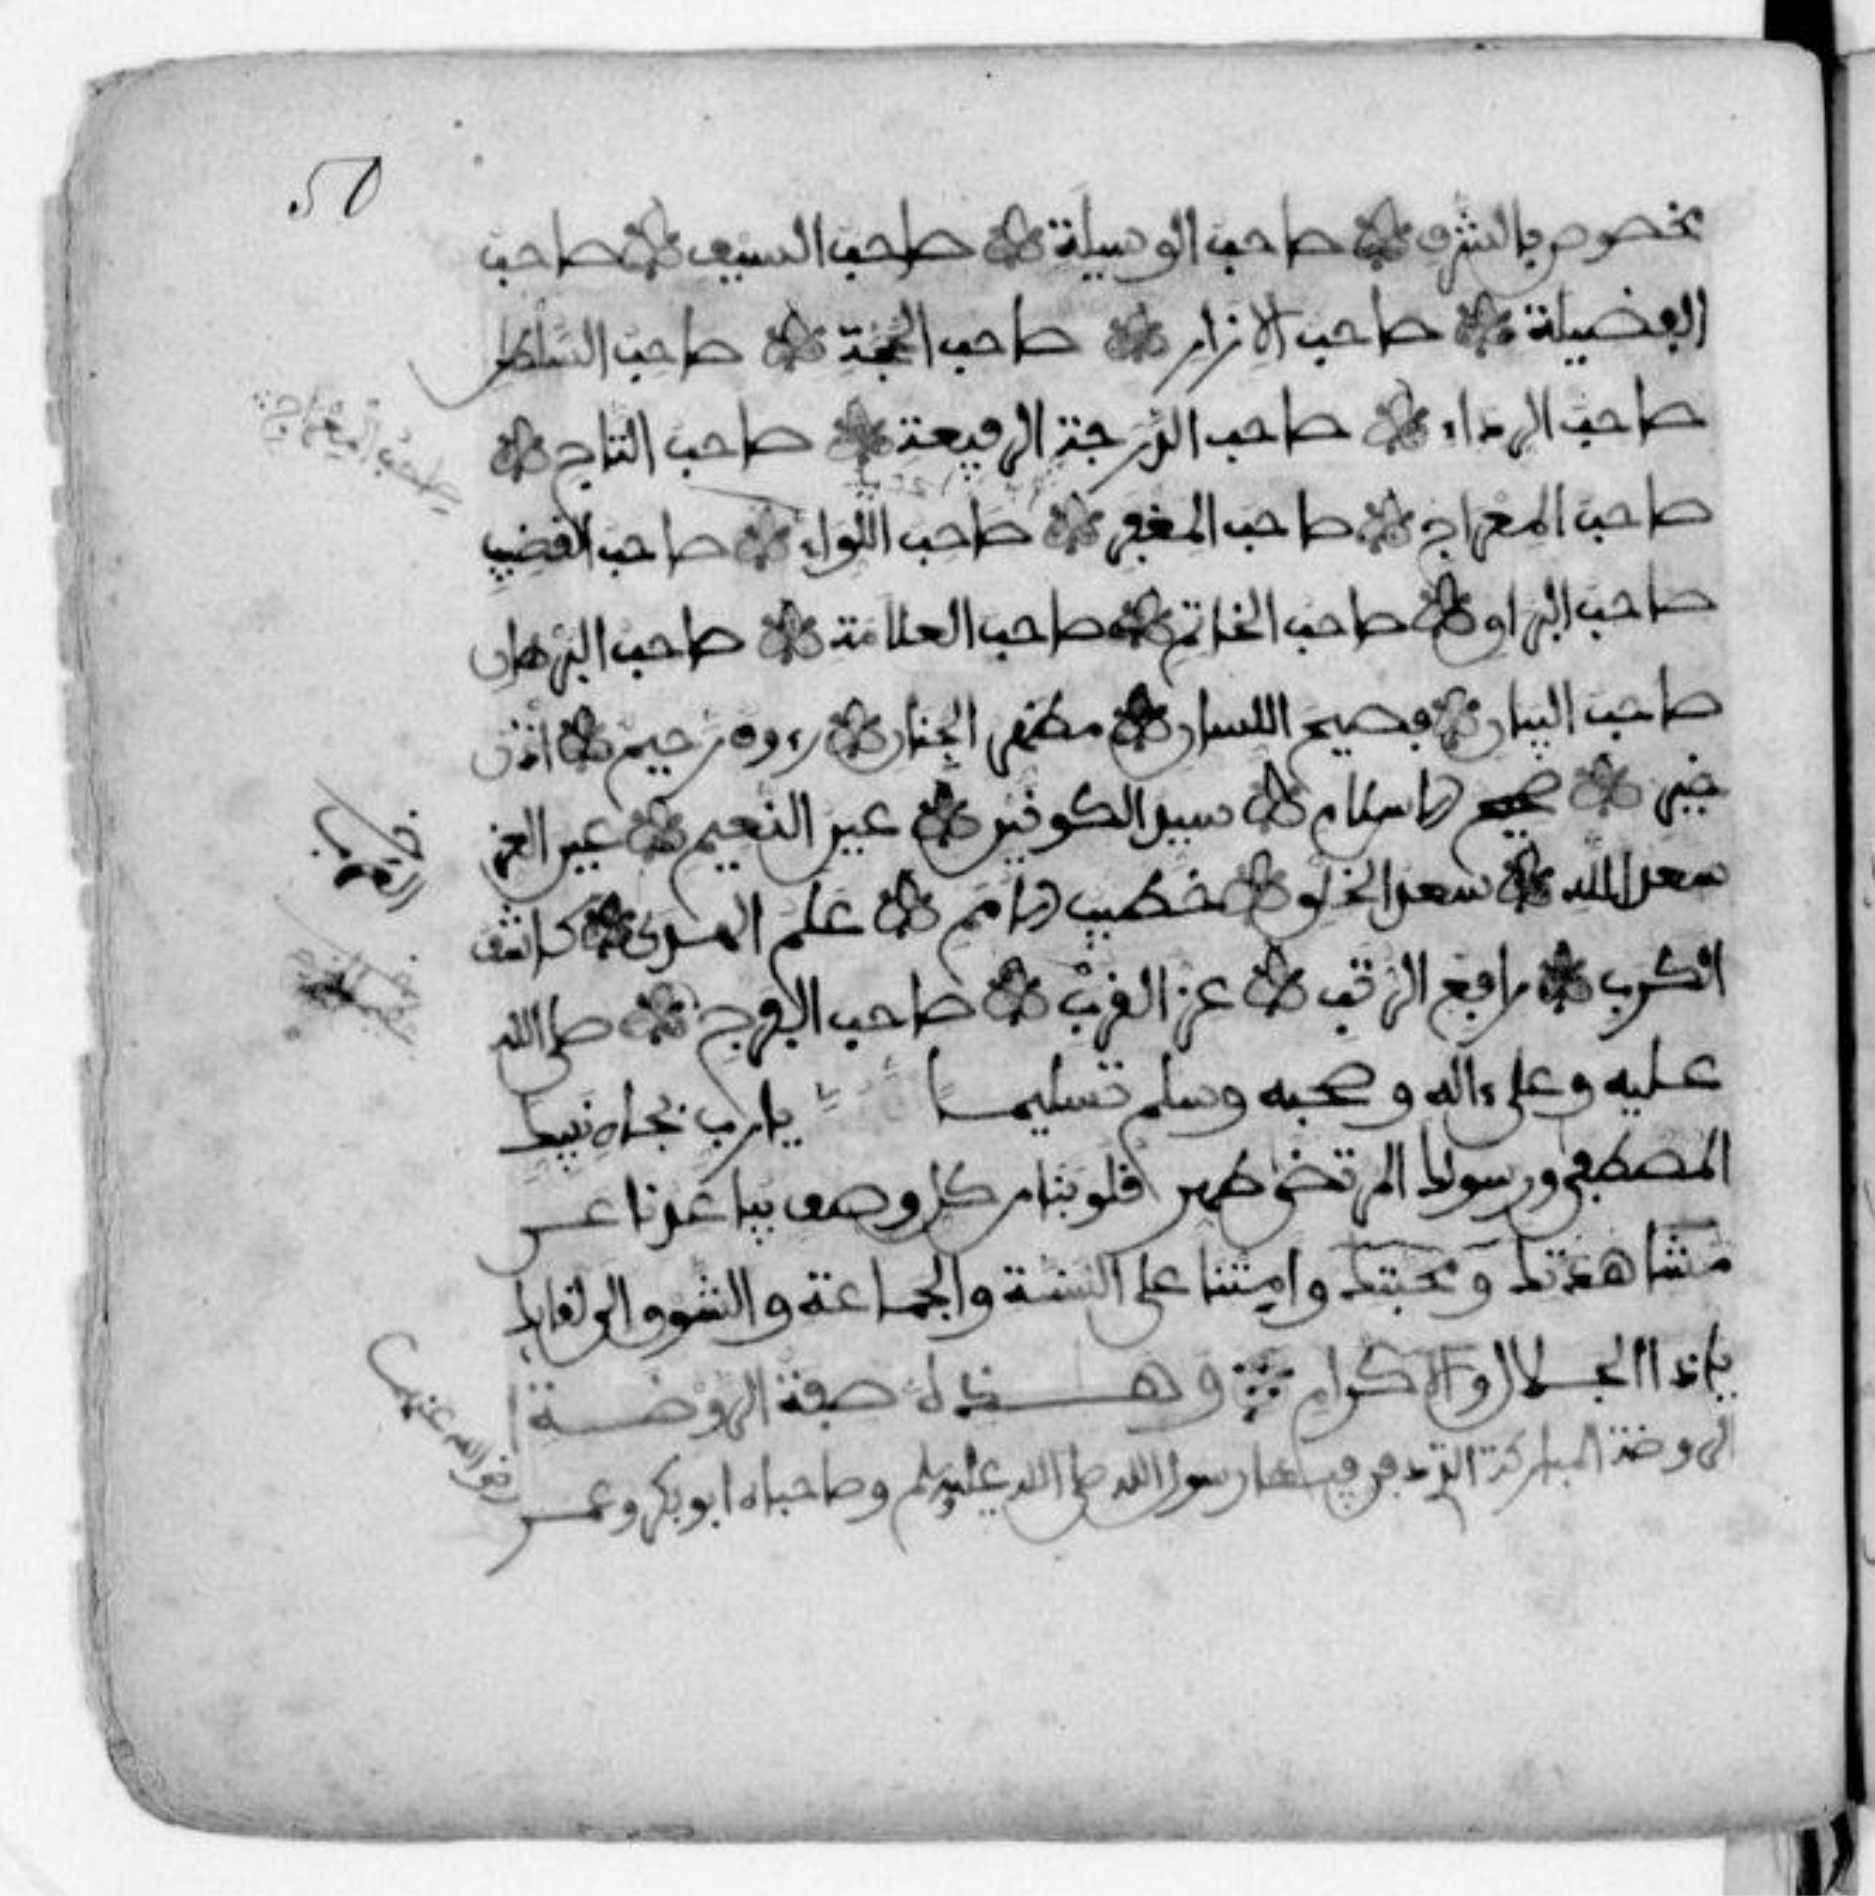 50
مخصوص بالشرف صاحب الوسيلة صاحب السيف صاحب
الفضيلة صاحب الازار صاحب الحجة صاحب السلطن
صاحب الرداء صاحب الدرجة الرفيعة صاحب التاج
صاحب المعراج
صاحب المغفر صاحب اللواء صاحب القضيب
صاحب البراق صاحب الخاتم صاحب العلامة صاحب البرهان
صاحب البيان فصيح اللسان مطهر الجنان رءوف رحيم اذن
خير صحيح الاسلام سيد الكونين عين النعيم عين الغر
سعد الله سعد الخلق خطيب الامم علم الهدى كاشف
الكرب رافع الرتب عز العرب صاحب الفرج صلى الله
عليه وعلى ءاله وصحبه وسلم تسليما يارب بجاه نبيك
المصطفى ورسولك المرتضى طهر قلوبنا من كل وصف يباعدنا عن
مشاهدتك ومحبتك وامتنا على السنة والجماعة والشوق الى لقايك
ياذا الجلال والاكرام وهذه صفة الروضة
الروضة المباركة التى دفن فيها رسول الله صلى الله عليه وسلم وصاحباه ابو بكر وعمر
رضى الله عنهما